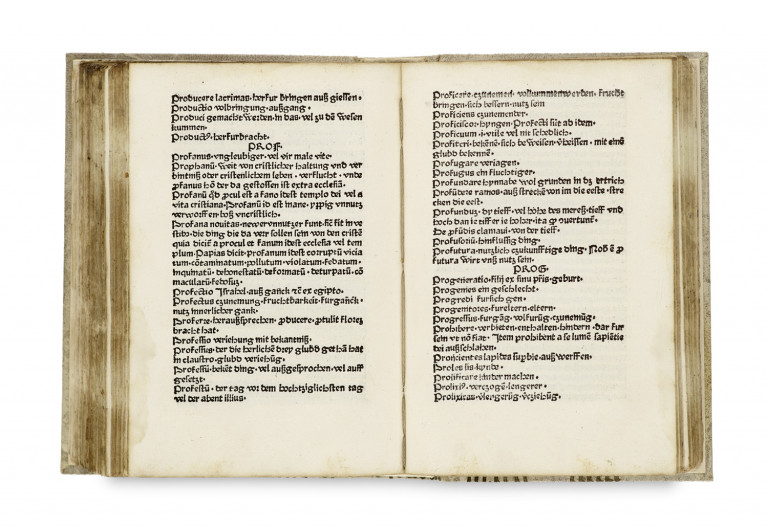 Producere lacrimas. herfur bringen auß giessen.
Productio volbringung. außgang.
Produci gemacht werden in das. vel zu dem wesen
kummen.
Productꝰ. herfurbracht.
PROF.
Profanus. vngleubiger. vel vir male vite.
Prophanū. weit von cristlicher haltung vnd ver
bintniß oder cristenlichem leben. verflucht. vnde
ꝓfanus
der da gestossen ist extra ecclesiā.
Profanū qd̄ ꝓcul est a fano idest templo dei vel a
vita cristiana. Profanū id est inane. vppig vnnutz
verworffen boß vncristlich.
Profana nouitas. newervnnutzer funt. sic̄ fit in ve
stibꝰ. die ding die da verr sollen sein von den cristē
quia dicit̄ a procul et fanum idest ecclesia vel tem
plum. Papias dicit. profanum idest corruptū vicia
tum. cōtaminatum. pollutum. violatum. fedatum.
inquinatū. dehonestatū. deformatū. deturpatū. cō
maculatū. fedosuꝫ.
Profectio Israhel. auß ganck ꝛc̄ ex egipto.
Profectus. czunemung. fruchtbarkeit. furganck.
nutz. innerlicher gank.
Proferre. heraußsprechen. ꝓducere. ꝓtulit flores
bracht hat.
Professio veriehung mit bekantniß.
Professus. der die herliche drey glubd gethā hat
in claustro. glubd veriehūg.
Professū. bekēt ding. vel außgesprochen. vel auff
gesetzt.
Profestū. der tag vor dem hochtziglichsten tag
vel der abent illius.
Proficere. czunemen. volkummenwerden. Frucht
bringen. sich bessern. nutz sein
Proficiens czunemender.
Proficisco
hyngen. Profecti sūt ab idem.
Proficuum. i. vtile vel nit schedlich.
Profiteri. bekēnē. sich beweisen. vheissen. mit einē
glubd bekennē.
Profugare veriagen.
Profugus ein fluchtiger.
Profundare hynnabe wol grunden in dz ertrich
Profūdere ramos. außstrecken von im die este. stre
cken die est.
Profunduꝫ. der tieff. vel hohe des mereß. tieff vnd
hoch dan ie tiffer ie hoher. ita ꝙ questuntē.
De ꝓfūdis clamaui. von der tieff.
Profusoriū. hinflussig ding.
Profutura. nutzlich czukunfftige ding. Non ē ꝓ
futura wirt vnß nutz sein.
PROG.
Progeneratio. filij ex sinu pr̄is. geburt.
Progenies ein geschlecht.
Progredi fursich gen.
Progenitores. fureltern. eltern.
Progressus. furgāg. volfurūg. czunemūg.
Prohibere. verbieten. enthalten. hindern. dar fur
sein vt non fiat. Item prohibent a se lumē sapiētie
bei außschlahen.
Proiicientes lapides suꝑ hie. auß werffen.
Proles lis. kynde.
Prolificare kinder machen.
Prolixꝰ. verczogen. lengerer.
Prolixitas. vlengerūg. vcziehūg.